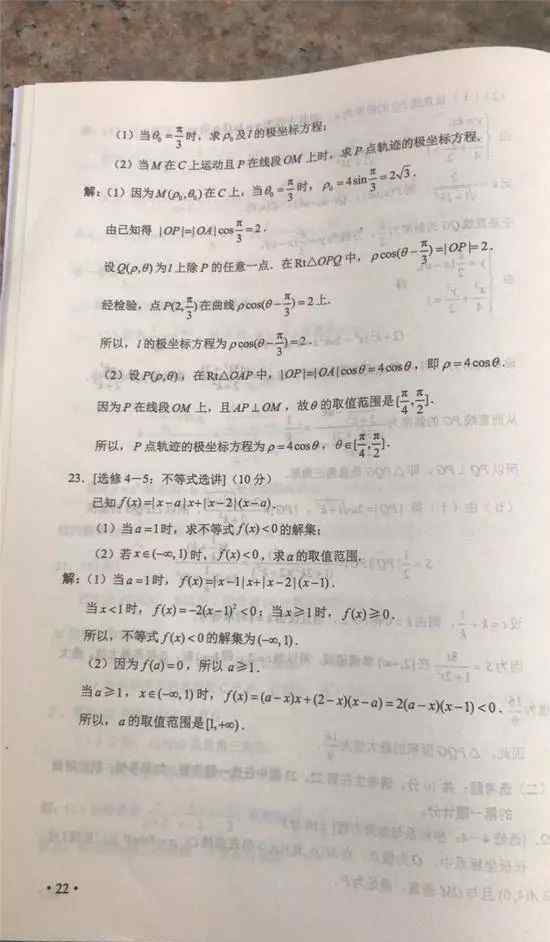 （1）当θ₀=π/3时，求ρ₀及l的极坐标方程；
（2）当M在C上运动且P在线段OM上时，求P点轨迹的极坐标方程.
解：（1）因为M(ρ₀,θ₀)在C上，当θ₀=π/3时，ρ₀=4sin π/3=2√3.
由已知得 |OP|=|OA|cos π/3=2.
设Q(ρ,θ)为l上除P的任意一点．在Rt△OPQ中，ρcos(θ-π/3)=|OP|=2.
经检验，点P(2,π/3)在曲线ρcos(θ-π/3)=2上.
所以，l的极坐标方程为ρcos(θ-π/3)=2.
（2）设P(ρ,θ)，在Rt△OAP中，|OP|=|OA|cosθ=4cosθ，即ρ=4cosθ.
因为P在线段OM上，且AP⊥OM，故θ的取值范围是[π/4,π/2].
所以，P点轨迹的极坐标方程为ρ=4cosθ，θ∈[π/4,π/2].
23．[选修4－5：不等式选讲]（10分）
已知f(x)=|x-a|x+|x-2|(x-a).
（1）当a=1时，求不等式f(x)<0的解集；
（2）若x∈(-∞,1)时，f(x)<0，求a的取值范围.
解：（1）当a=1时，f(x)=|x-1|x+|x-2|(x-1).
当x<1时，f(x)=-2(x-1)²<0；当x≥1时，f(x)≥0.
所以，不等式f(x)<0的解集为(-∞,1).
（2）因为f(a)=0，所以a≥1.
当a≥1，x∈(-∞,1)时，f(x)=(a-x)x+(2-x)(x-a)=2(a-x)(x-1)<0.
所以，a的取值范围是[1,+∞).
·22·